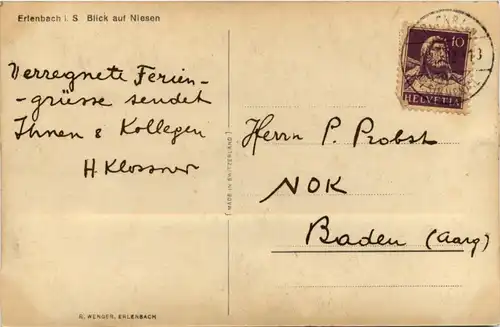 Erlenbach i. S. Blick auf Niesen
Verregnete Ferien-
-grüsse sendet
Ihnen & Kollegen
H. Klossner
10
HELVETIA
Herrn P. Probst
NOK
Baden (Aarg)
MADE IN SWITZERLAND
R. WENGER, ERLENBACH